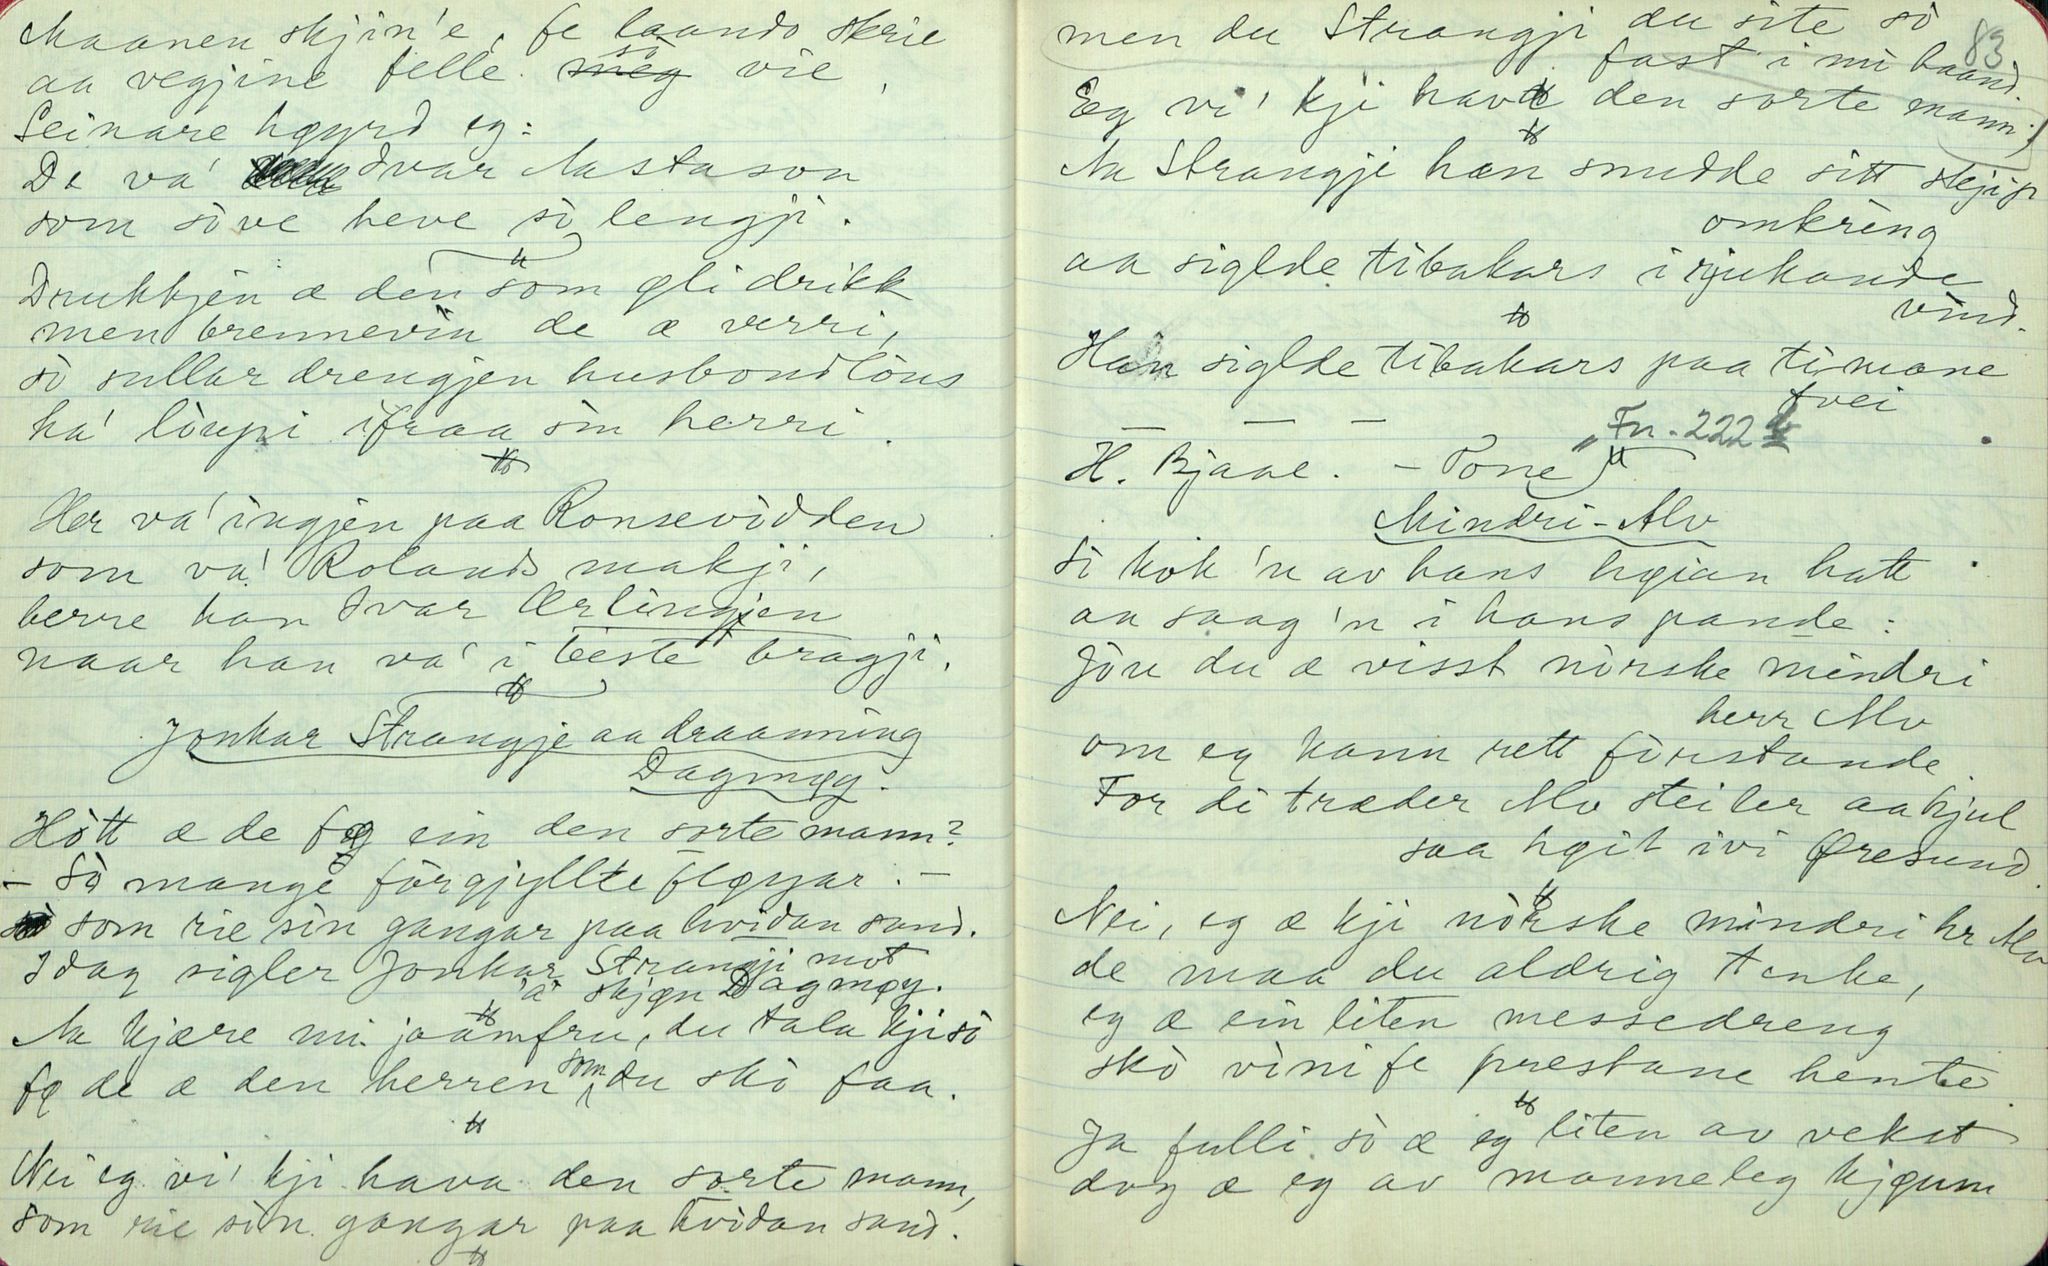 Maanen skjin'e, fe laando skrie
aa vegjine felle meg sò vie,
Seinare høyrd eg:
De va' Ivar Aastason
som sòve heve sò lengji.
Drukkjen æ den som gli drikk
men brennevin de æ verri,
sò sullar drengjen husbondlòus
ha' lòupi ifraa sin herri.
Her va' ingjen paa Ronsevidden
som va' Rolands makji,
berre han Ivar Ærlingjen
naar han va' i beste bragji.
Jonkar Strangje aa draanning
Dagmøy.
Hòtt æ de fø ein den sorte mann?
– Sò mange fòrgjyllte fløyar. –
som rie sin gangar paa hvidan sand.
Idag sigler Jonkar Strangji mot
'a' skjøn Dagmøy.
Aa kjære mi joamfru, du tala kji sò
fø de æ den herren som du skò faa.
Nei eg vi' kji hava den sorte mann,
som rie sin gangar paa hvidan sand.
83
men du Strangji du site sò
fast i mi haand.
Eg vi' kji hava den sorte mann;
Aa Strangji han snudde sitt skjip
omkring
aa siglde tibakars i rjukande
vind.
Han siglde tibakars paa timane
tvei
— — —
H. Bjaae. – Tone Fn. 222
Mindri-Alv
Sì kòk 'n av hans høian hatt
aa saag 'n i hans pande:
Jòu du æ visst nòrske mindri
herr Alv
om eg kann rett fòrstande
For di træder Alv steiler aa hjul
saa høit ivi Øresund.
Nei, eg æ kji nòrske mindri hr Alv
de maa du aldrig tenke,
eg æ ein liten messedreng
skò vini fe prestane hente.
Ja fulli sò æ eg liten av vekst
dog æ eg av manneleg kjøum